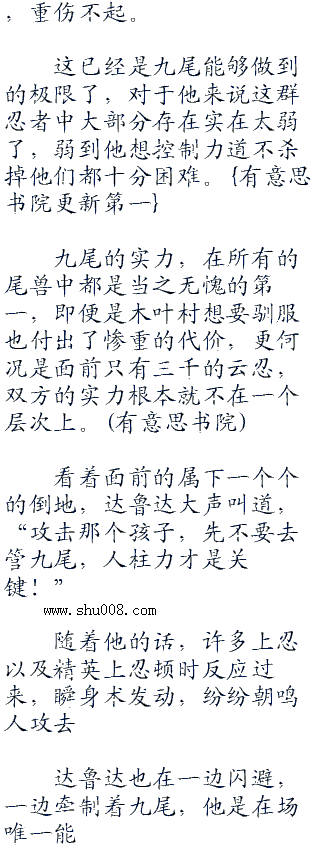 ，重伤不起。
这已经是九尾能够做到
的极限了，对于他来说这群
忍者中大部分存在实在太弱
了，弱到他想控制力道不杀
掉他们都十分困难。{有意思
书院更新第一}
九尾的实力，在所有的
尾兽中都是当之无愧的第
一，即便是木叶村想要驯服
也付出了惨重的代价，更何
况是面前只有三千的云忍，
双方的实力根本就不在一个
层次上。(有意思书院)
看着面前的属下一个个
的倒地，达鲁达大声叫道，
“攻击那个孩子，先不要去
管九尾，人柱力才是关
键！”
www.shu008.com
随着他的话，许多上忍
以及精英上忍顿时反应过
来，瞬身术发动，纷纷朝鸣
人攻去
达鲁达也在一边闪避，
一边牵制着九尾，他是在场
唯一能